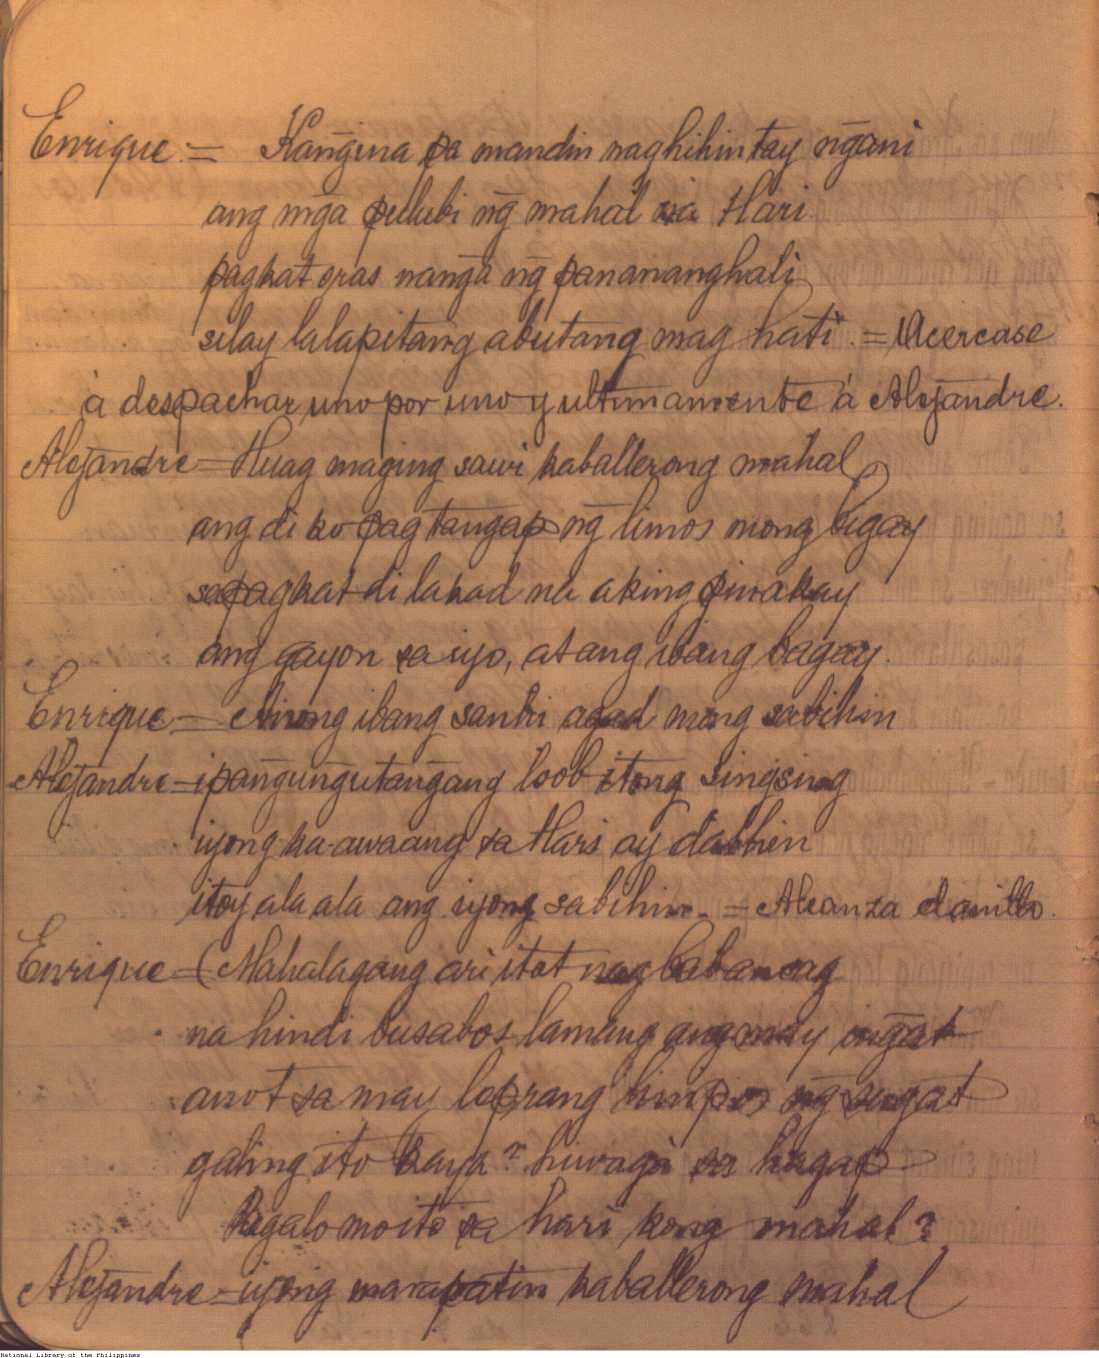 Enrique = Kan̄gina pa mandin naghihintay n̄gani
ang mn̄ga pulubi n̄g mahal na Hari
pagkat oras nan̄ga n̄g panananghali
silay lalapitang abutang mag hati. = Acercase
á despachar, uno por uno y ultimamente á Alejandre.
Alejandre = Huag maging sawi kaballerong mahal
ang di ko pag tangap n̄g limos mong bigay
sapagkat di lakad na aking pinakay
ang gayon sa iyo, at ang ibang bagay.
Enrique = ibang sanhi agad mong sabihin
Alejandre = ipan̄gun̄gutan̄gang loob itong singsing
iyong ka-awaang sa Hari ay dalhin
itoy ala ala ang iyong sabihin. = Alcanza el anillo.
Enrique = (Mahalagang ari itot nagbabanaag
na hindi busabos lamang ang may in̄gat
anot sa may leprang himpos n̄g sugat
galing ito kaya? hiwaga sa hagap
Regalo mo ito sa hari kong mahal?
Alejandre = iyong marapatin kaballerong mahal
National Library of the Philippines